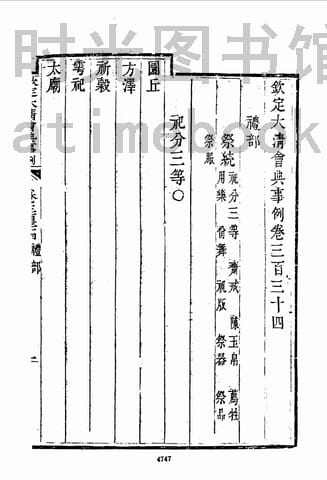 时光图书馆
atimebook
欽定大清會典事例卷三百三十四
禮部
祭統 祀分三等 齋戒 陳玉帛 薦牲
用樂 佾舞 祝版 祭器 祭品
祭服
祀分三等○
圜丘
方澤
祈穀
雩祀
太廟
欽定大清會典事例 卷三百三十四 禮部 一
4747